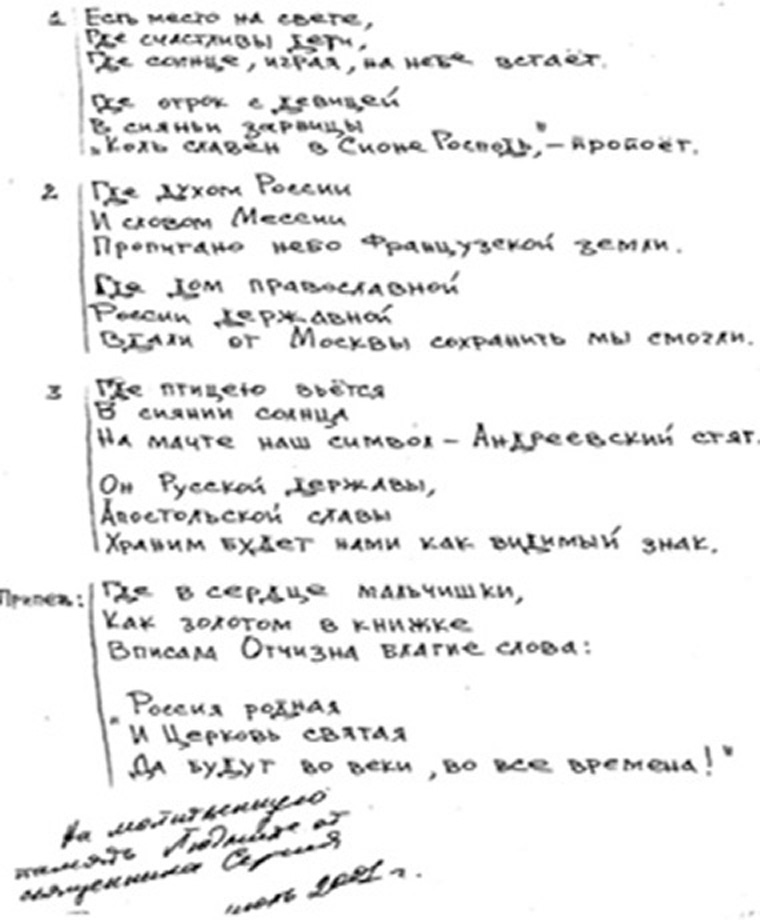 1 Есть место на свете,
Где счастливы дети,
Где солнце, играя, на небе встаёт.
Где отрок с девицей
В сияньи зарницы
„Коль славен в Сионе Господь",– пропоёт.
2 Где духом России
И словом Мессии
Пропитано небо Французской земли.
Где дом православной
России державной
Вдали от Москвы сохранить мы смогли.
3 Где птицею вьётся
В сиянии солнца
На мачте наш символ – Андреевский стяг.
Он Русской державы,
Апостольской славы
Храним будет нами как видимый знак.
Припев: Где в сердце мальчишки,
Как золотом в книжке
Вписала Отчизна благие слова:
„Россия родная
И Церковь святая
Да будут во веки, во все времена!"
На молитвенную
память Людмиле от
священника Сергия
июль 2001 г.